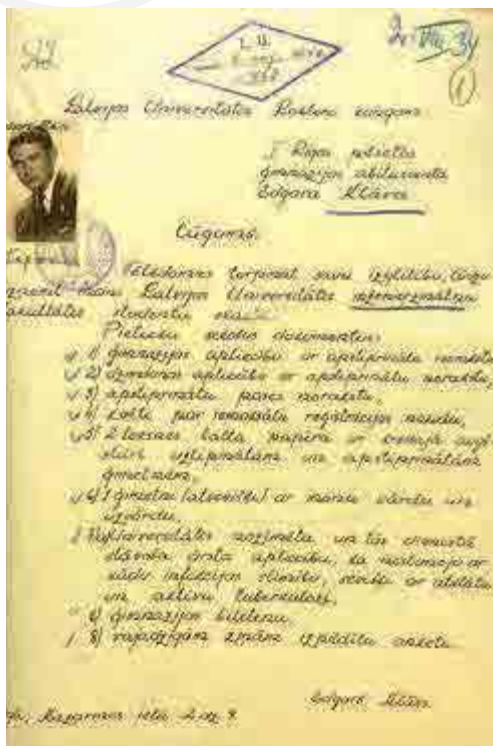 L. U.
Latvijas Universitātes Rektora kungam.
I Rīgas pilsētas
ģimnazijas abiturienta
Edgara Klāva
Lūgums.
Vēlēdamies turpināt savu izglītību, lūdzu
mani Latvijas Universitātes
fakultātes studentu
Pielieku sekošus dokumentus:
1) ģimnazijas apliecību ar apstiprinātu norakstu,
2) dzimšanas apliecību ar apstiprinātu norakstu,
3) apstiprinātu pases norakstu,
4) kvīti par iemaksātu reģistrācijas naudu,
5) 2 loksnes balta papīra ar kreisajā augšē
stūrī uzlīpinātām un apstiprinātām
ģīmetnēm,
6) 1 ģīmetni (atsevišķi) ar manu vārdu un
uzvārdu,
7) Universitātes nozīmēta un tās
ārsta apliecību, ka neslimoju ar
kādu infekcijas slimību, sevišķi ar atklātu
un aktīvu tuberkulozi,
8) ģimnazijas biļetenu
8) vajadzīgām ziņām izpildītu anketu
Edgars Klāvs
Kazarmes ielā 2 dz. 9.